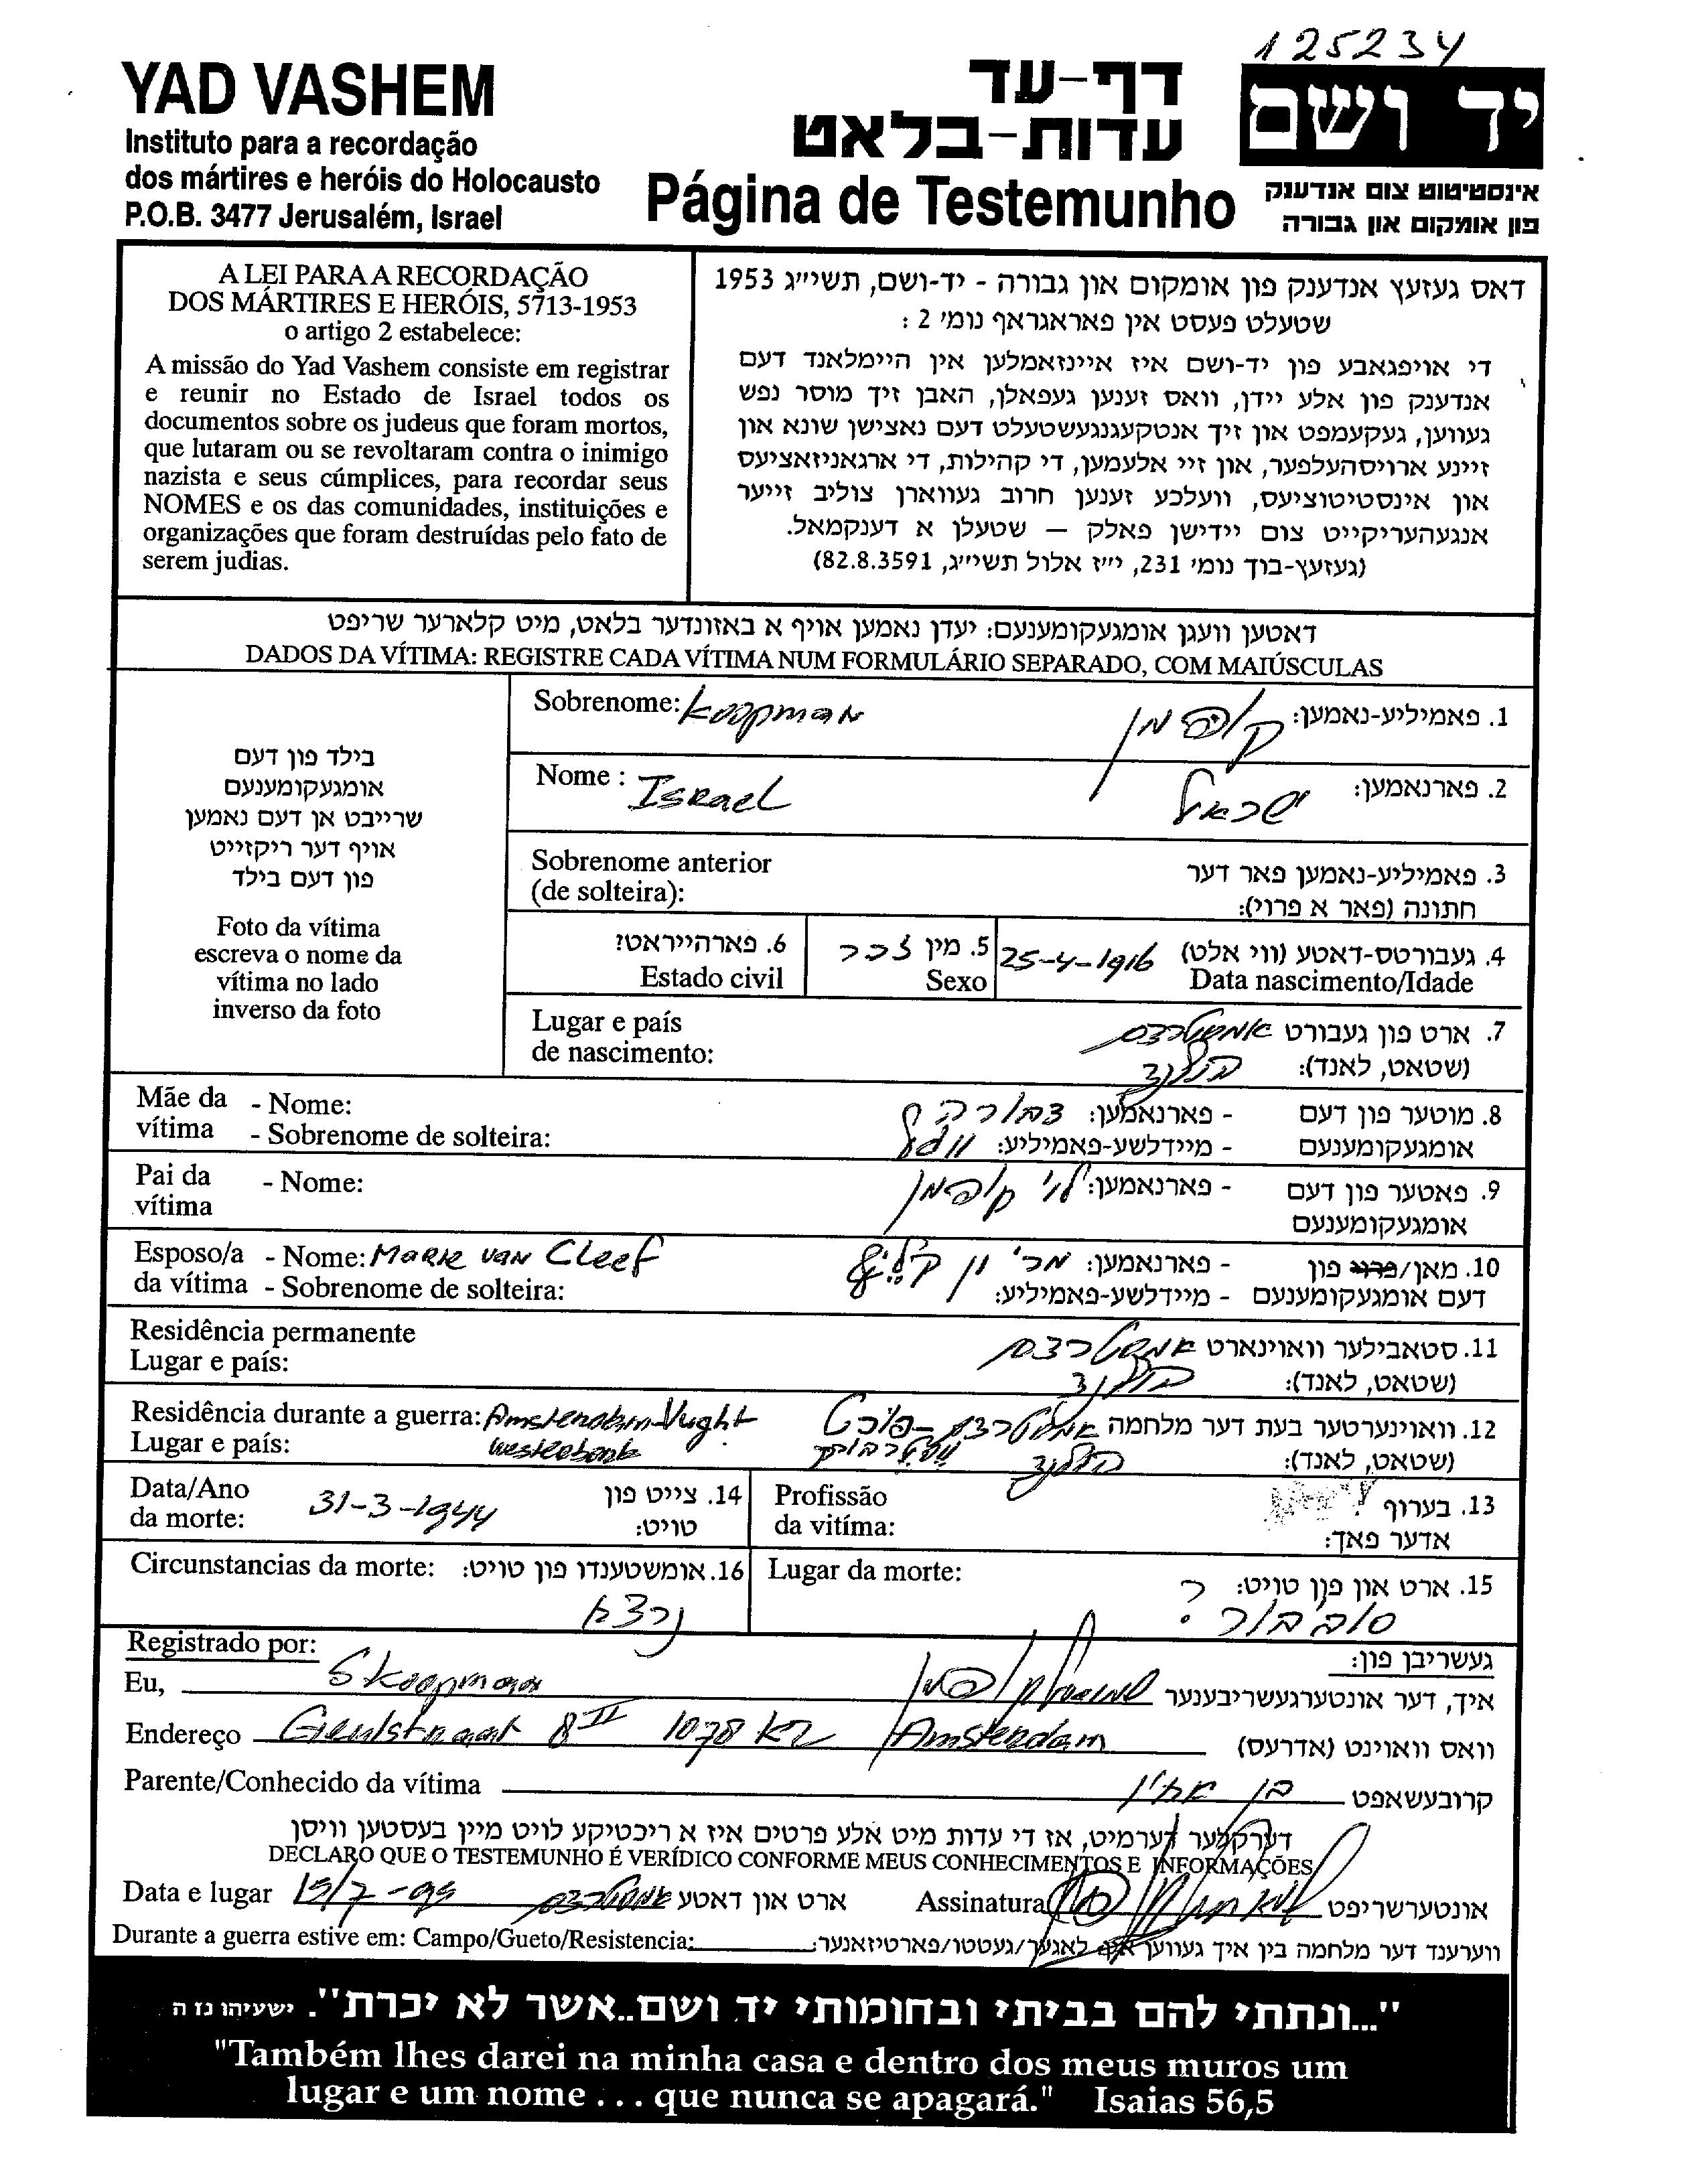 125234
YAD VASHEM
Instituto para a recordação
dos mártires e heróis do Holocausto
P.O.B. 3477 Jerusalém, Israel
דף-עד
עדות-בלאט
Página de Testemunho
יד ושם
אינסטיטוט צום אנדענק
פון אומקום און גבורה
A LEI PARA A RECORDAÇÃO
DOS MÁRTIRES E HERÓIS, 5713-1953
o artigo 2 estabelece:
A missão do Yad Vashem consiste em registrar
e reunir no Estado de Israel todos os
documentos sobre os judeus que foram mortos,
que lutaram ou se revoltaram contra o inimigo
nazista e seus cúmplices, para recordar seus
NOMES e os das comunidades, instituições e
organizações que foram destruídas pelo fato de
serem judias.
דאס געזעץ אנדענק פון אומקום און גבורה - יד-ושם, תשי״ג 1953
שטעלט פעסט אין פאראגראף נומ׳ 2 :
די אויפגאבע פון יד-ושם איז איינזאמלען אין היימלאנד דעם
אנדענק פון אלע יידן, וואס זענען געפאלן, האבן זיך מוסר נפש
געווען, געקעמפט און זיך אנטקעגנגעשטעלט דעם נאצישן שונא און
זיינע ארויסהעלפער, און זיי אלעמען, די קהילות, די ארגאניזאציעס
און אינסטיטוציעס, וועלכע זענען חרוב געווארן צוליב זייער
אנגעהעריקייט צום יידישן פאלק — שטעלן א דענקמאל.
(געזעץ-בוך נומ׳ 231, י״ז אלול תשי״ג, 82.8.3591)
דאטען וועגן אומגעקומענעם: יעדן נאמען אויף א באזונדער בלאט, מיט קלארער שריפט
DADOS DA VÍTIMA: REGISTRE CADA VÍTIMA NUM FORMULÁRIO SEPARADO, COM MAIÚSCULAS
בילד פון דעם
אומגעקומענעם
שרייבט אן דעם נאמען
אויף דער ריקזייט
פון דעם בילד
Foto da vítima
escreva o nome da
vítima no lado
inverso da foto
Sobrenome: Koopman קופמן 1. פאמיליע-נאמען:
Nome : Israel ישראל 2. פארנאמען:
Sobrenome anterior 3. פאמיליע-נאמען פאר דער
(de solteira): חתונה (פאר א פרוי):
6. פארהייראט? 5. מין זכר 25-4-1916 4. געבורטס-דאטע (ווי אלט)
Estado civil Sexo Data nascimento/Idade
Lugar e país אמסטרדם 7. ארט פון געבורט
de nascimento: הולנד (שטאט, לאנד):
Mãe da - Nome: דבורה - פארנאמען: 8. מוטער פון דעם
vítima - Sobrenome de solteira: - מיידלשע-פאמיליע: אומגעקומענעם
Pai da - Nome: לוי קופמן - פארנאמען: 9. פאטער פון דעם
vítima אומגעקומענעם
Esposo/a - Nome: Marie van Cleef מרי ון קליף - פארנאמען: 10. מאן/פרוי פון
da vítima - Sobrenome de solteira: - מיידלשע-פאמיליע: דעם אומגעקומענעם
Residência permanente אמסטרדם 11. סטאבילער וואוינארט
Lugar e país: הולנד (שטאט, לאנד):
Residência durante a guerra: Amsterdam-Vught אמסטרדם-פוכט 12. וואוינערטער בעת דער מלחמה
Lugar e país: Westerbork וסטרבורק הולנד (שטאט, לאנד):
Data/Ano 31-3-1944 14. צייט פון Profissão 13. בערוף
da morte: טויט: da vitíma: אדער פאך:
Circunstancias da morte: 16. אומשטענדו פון טויט: Lugar da morte: 15. ארט און פון טויט:
נרצח סוביבור ?
Registrado por: געשריבן פון:
Eu, S Koopman שמואל קופמן איך, דער אונטערגעשריבענער
Endereço Geulstraat 8 II 1078 KZ Amsterdam וואס וואוינט (אדרעס)
Parente/Conhecido da vítima בן אחיו קרובעשאפט
דערקלער דערמיט, אז די עדות מיט אלע פרטים איז א ריכטיקע לויט מיין בעסטען וויסן
DECLARO QUE O TESTEMUNHO É VERÍDICO CONFORME MEUS CONHECIMENTOS E INFORMAÇÕES
Data e lugar 15/7-95 אמסטרדם ארט און דאטע Assinatura אונטערשריפט
Durante a guerra estive em: Campo/Gueto/Resistencia: ווערענד דער מלחמה בין איך געווען אין לאגער/געטטו/פארטיזאנער:
"...ונתתי להם בביתי ובחומותי יד ושם..אשר לא יכרת". ישעיהו נז ה
"Também lhes darei na minha casa e dentro dos meus muros um
lugar e um nome . . . que nunca se apagará." Isaias 56,5